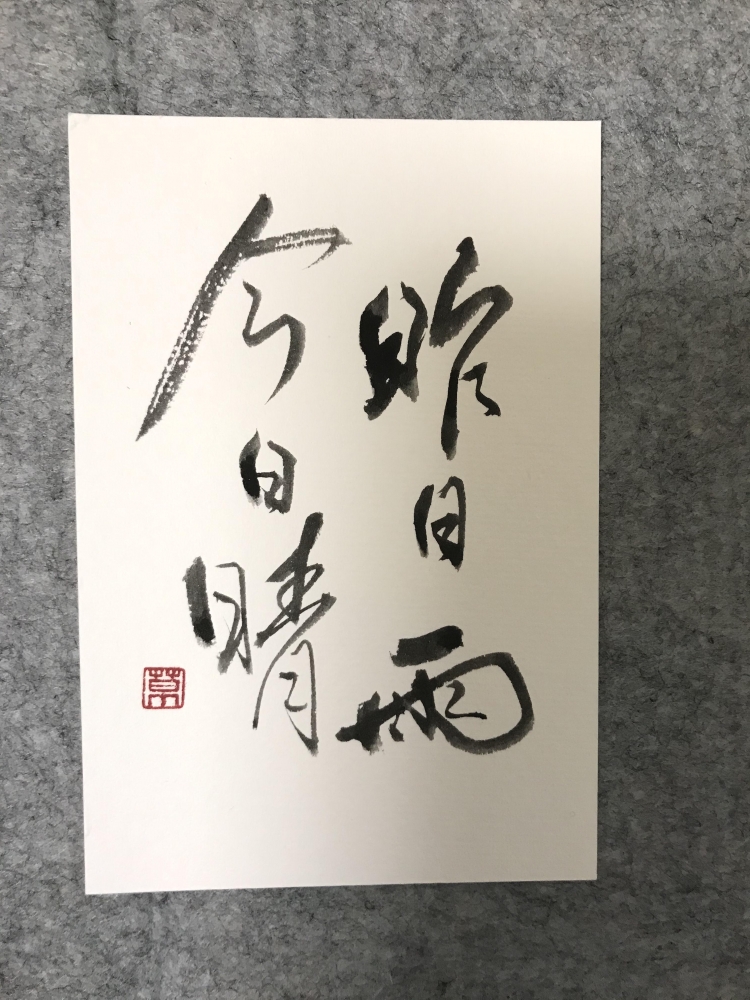 昨日雨
今日晴